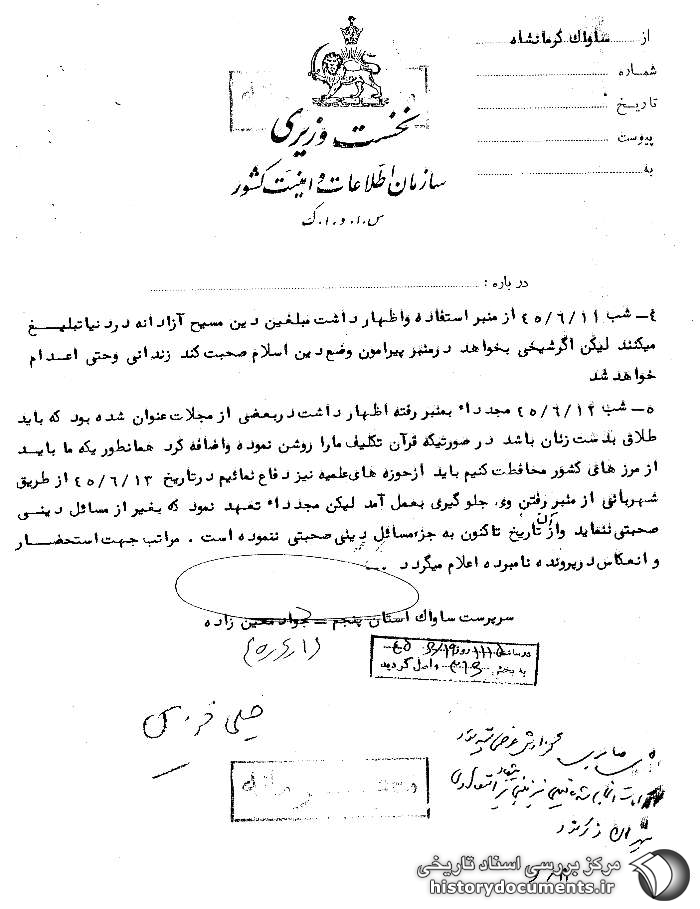 از ساواك كرمانشاه
شماره
تاریخ
پیوست
به
نخست وزیری
سازمان اطلاعات و امنیت کشور
س.ا.و.ا.ک
درباره :
٤ـ شب ٤٥/٦/١١ از منبر استفاده واظهار داشت مبلغین دین مسیح آزادانه دردنیا تبلیغ
میکنند لیکن اگرشیخی بخواهد درمنبر پیرامون وضع دین اسلام صحبت کند زندانی وحتی اعدام
خواهد شد
٥ـ شب ٤٥/٦/١٢ مجدداً بمنبر رفته اظهار داشت دربعضی از مجلات عنوان شده بود که باید
طلاق بدست زنان باشد در صورتیکه قرآن تکلیف مارا روشن نموده واضافه کرد همانطوریکه ما باید
از مرز های کشور محافظت کنیم باید ازحوزه های علمیه نیز دفاع نمائیم درتاریخ ٤٥/٦/١٣ از طریق
شهربانی از منبر رفتن وی جلو گیری بعمل آمد لیکن مجدداً تعهد نمود که بغیر از مسائل دینی
صحبتی ننماید واز آن تاریخ تاکنون به جزمسائل دینی صحبتی ننموده است . مراتب جهت استحضار
و انعکاس در پرونده نامبرده اعلام میگردد ...
سرپرست ساواك استان پنجم ـ جواد معین زاده
در ساعت روز
به بخش واصل گردید
گزارش
مرکز بررسی اسناد تاریخی
historydocuments.ir